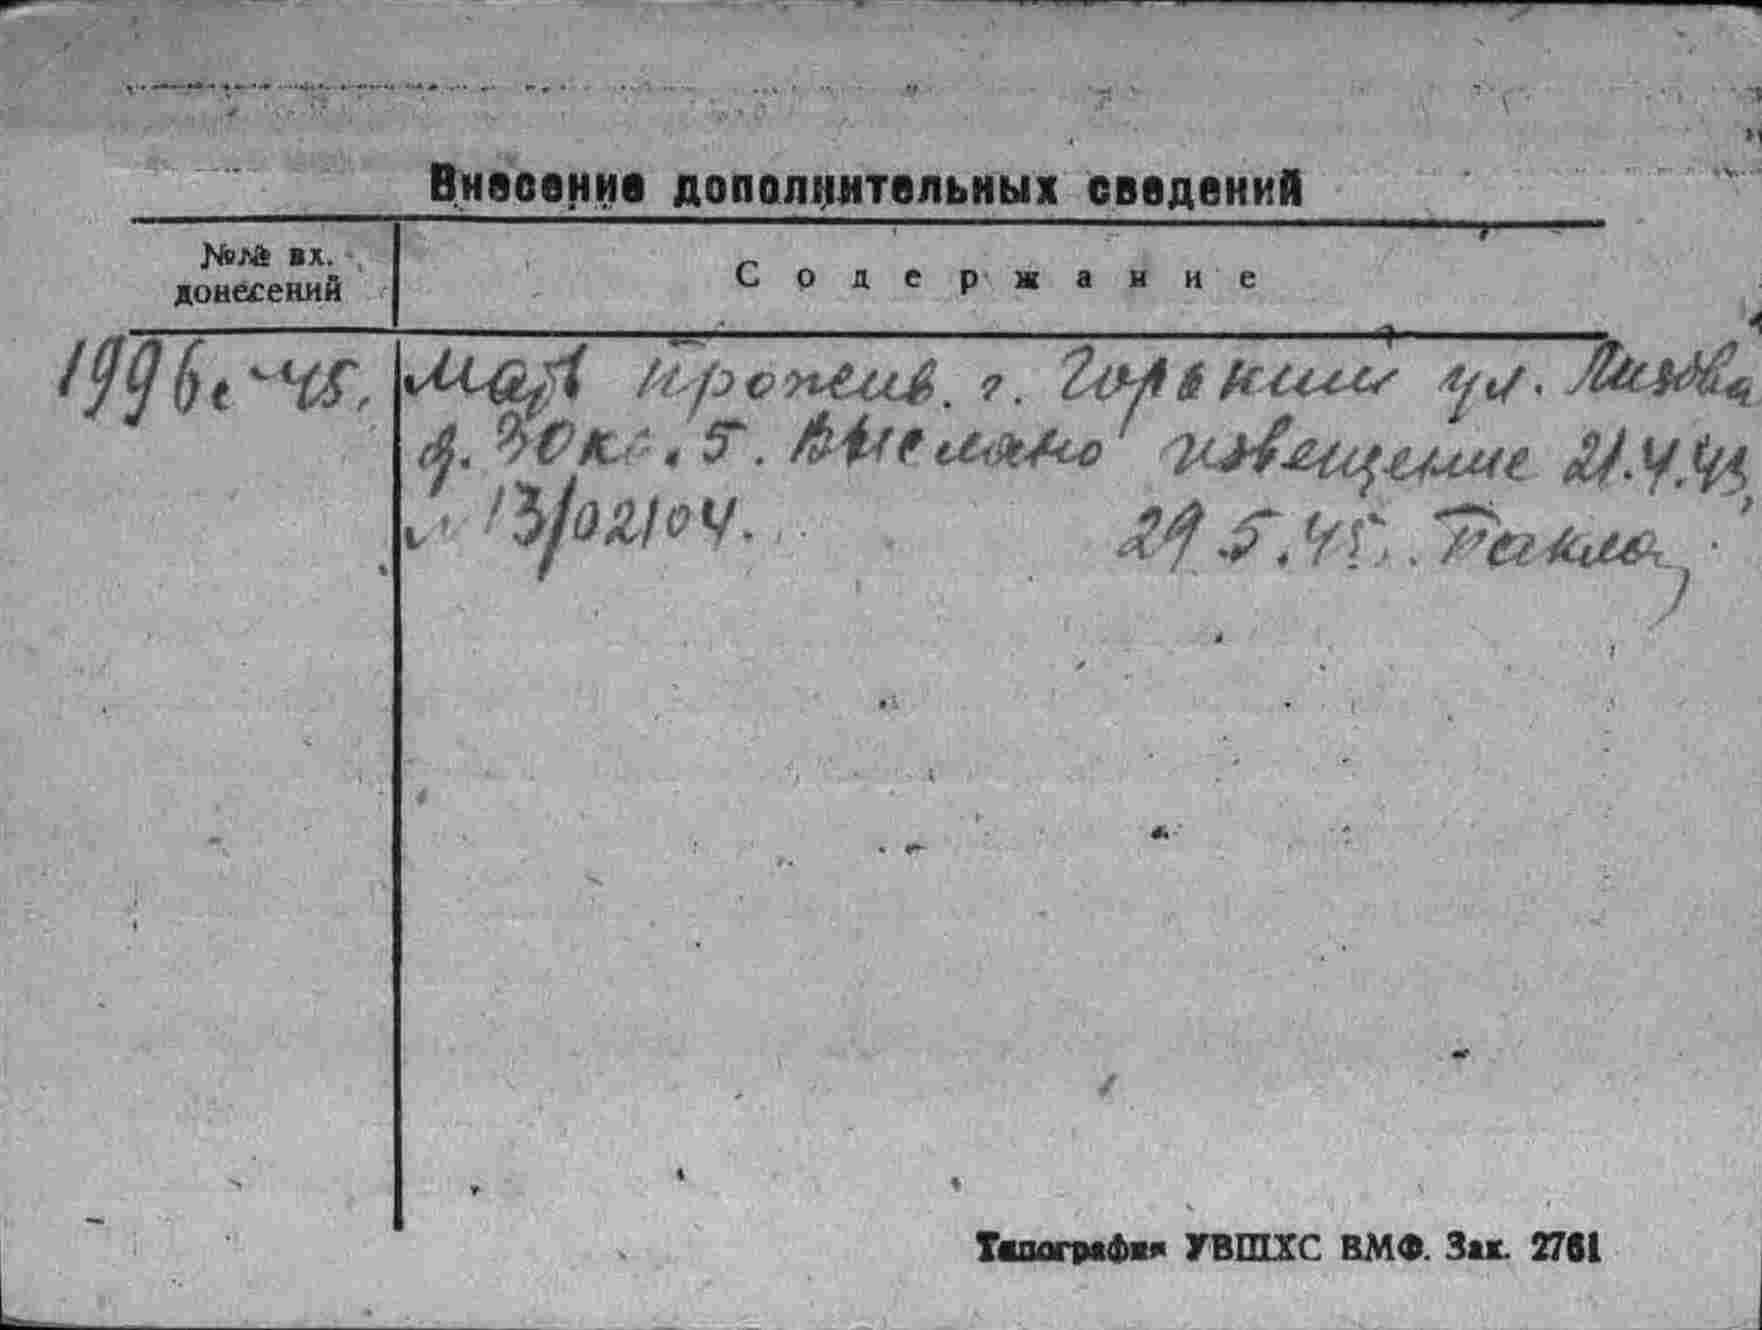 Внесение дополнительных сведений
№№ вх.
донесений
Содержание
1996с-45.
Мать прожив. г. Горький ул.
д. 30 кв. 5. Выслано извещение 21.4.43,
13/02104.
29.5.45.
Типография УВШХС ВМФ. Зак. 2761